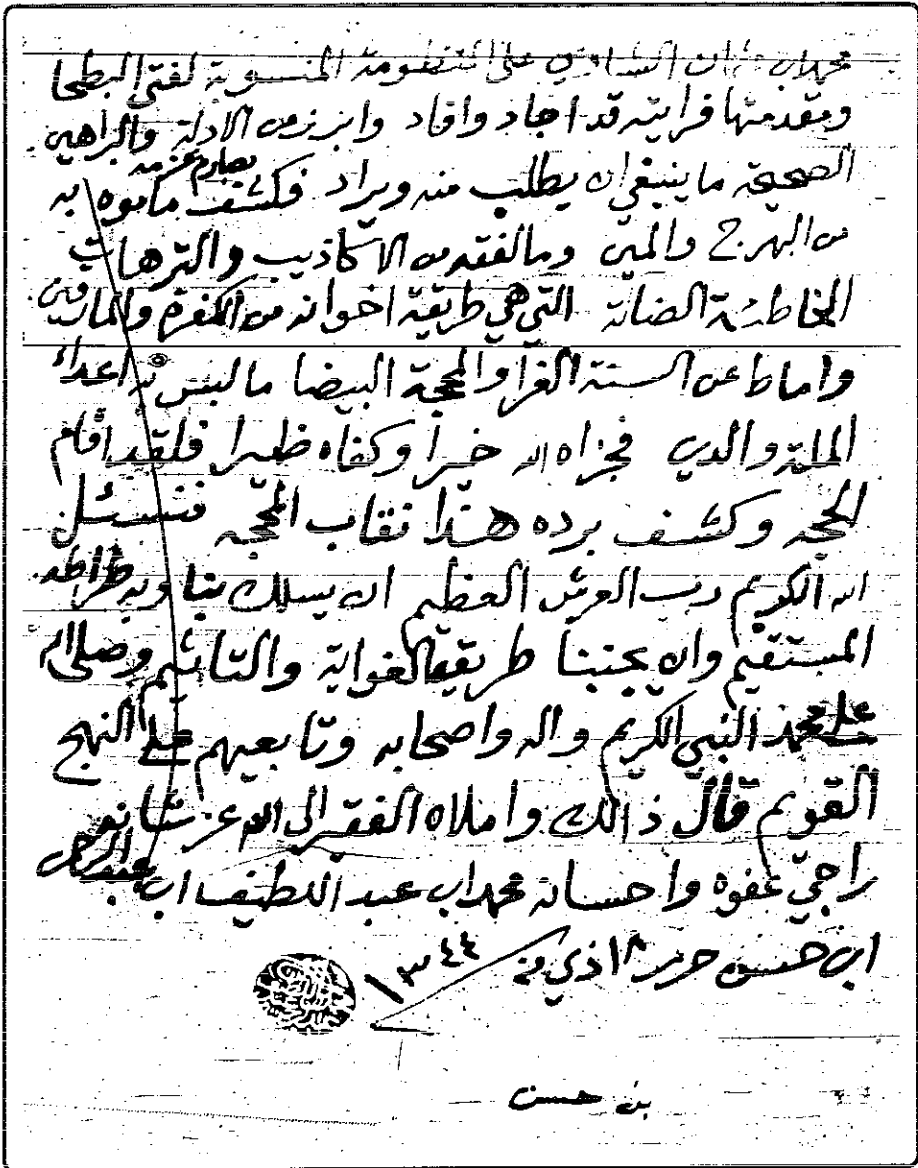 محمد اب على المنظومة المنسوبة لفتى البطحا
ومقدمتها فرايته قد اجاد وافاد وابرز من الادلة والبراهين
الصحيحة ما ينبغي ان يطلب منه ويراد فكشف بصارم عزمه ما موه به
من البهرج والمين وما لفقه من الاكاذيب والترهات
الخاطئة التي هي طريقة اخوانه من الكفرة والمارقين
واماط عن السنة الغرا والمحجة البيضا ما لبس به اعداء
الملة والدين فجزاه الله خيرا وكفاه ظيرا فلقد اقام
الحجه وكشف برده هذا نقاب المحجه فنسئل
الله الكريم رب العرش العظيم ان يسلك بنا وبه صراطه
المستقيم وان يجنبنا طريقة الغواية والتاثيم وصلى الله
على محمد النبي الكريم واله واصحابه وتابعيهم على النهج
القويم قال ذالك واملاه الفقير الى الله عز شانه
راجي عفوه واحسانه محمد اب عبد اللطيف اب عبد الرحمن
اب حسن حرر ١٣٤٤
بن حسن